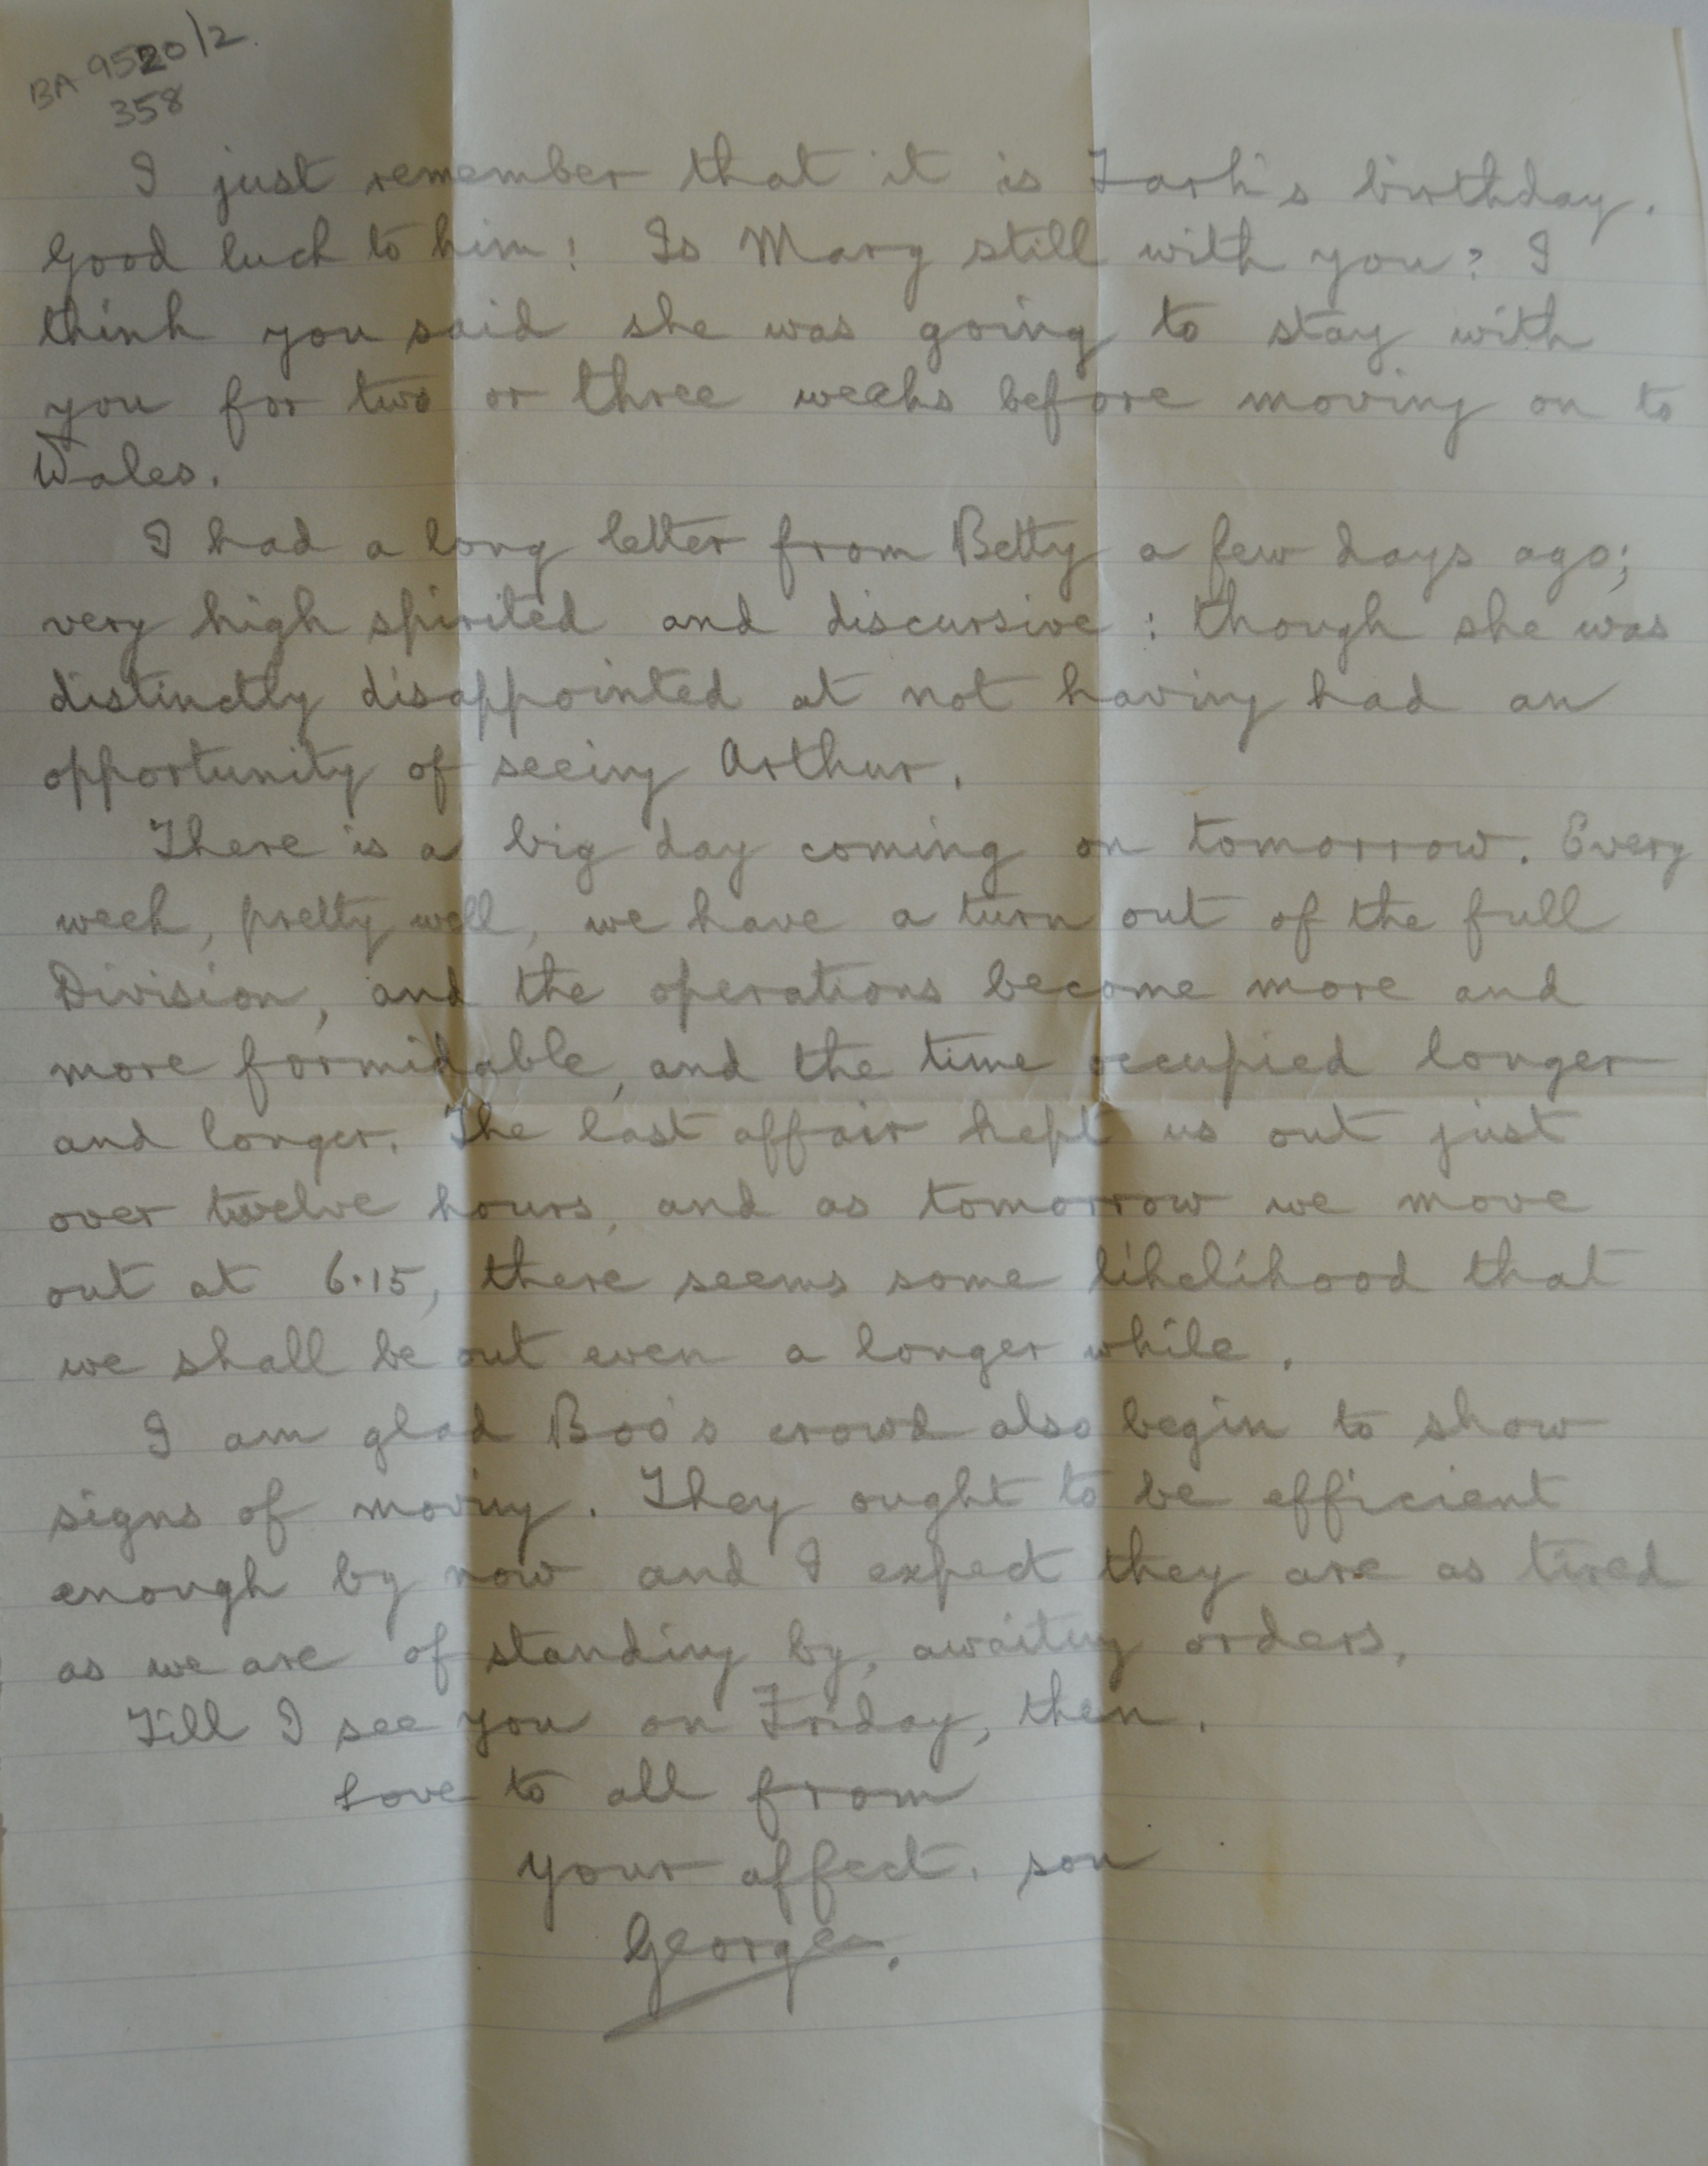 BA 9520/2.
358
I just remember that it is Lark's birthday.
Good luck to him! Is Marg still with you? I
think you said she was going to stay with
you for two or three weeks before moving on to
Wales.
I had a long letter from Betty a few days ago;
very high spirited and discursive: though she was
distinctly disappointed at not having had an
opportunity of seeing Arthur.
There is a big day coming on tomorrow. Every
week, pretty well, we have a turn out of the full
Division, and the operations become more and
more formidable, and the time occupied longer
and longer. The last affair kept us out just
over twelve hours, and as tomorrow we move
out at 6.15, there seems some likelihood that
we shall be out even a longer while.
I am glad Boo's crowd also begin to show
signs of moving. They ought to be efficient
enough by now and I expect they are as tired
as we are of standing by, awaiting orders.
Till I see you on Friday, then.
Love to all from
your affect. son
George.